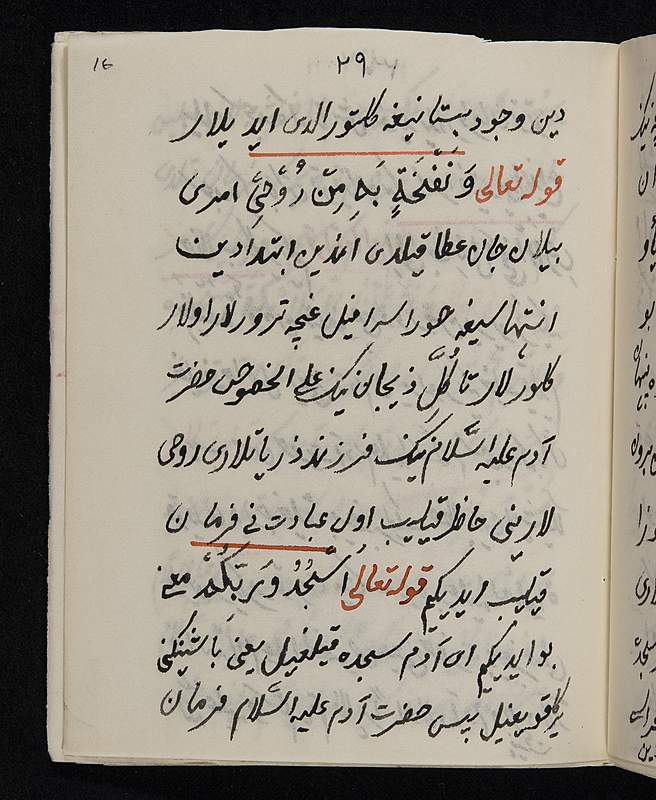 16
٢٩
دین وجود بستانیغه کلتورالدی ایدیلار
قوله تعالی وَنَفَخَةٍ بَهِ مِنّ رُوْحِیْ امری
بیلان جان عطا قیلدی اندین ابتدادین
انتهاسیغه حوراسرافیل غنچه ترورلار اولار
کلورلار تا کُلّ ذیجان نیک علی الخصوص حضرت
آدم علیه السّلام نیک فرزند ذریاتلاری روحی
لارینی حاظر قیلیب اول عبادت نی فرمان
قیلیب ایدیکیم قوله تعالی اَسْجُدُوَربّکُمْ معنی
بو ایدیکیم ای آدم سجده قیلغیل یعنی باشینکنی
یرکا قویغیل بیس حضرت آدم علیه السّلام فرمان